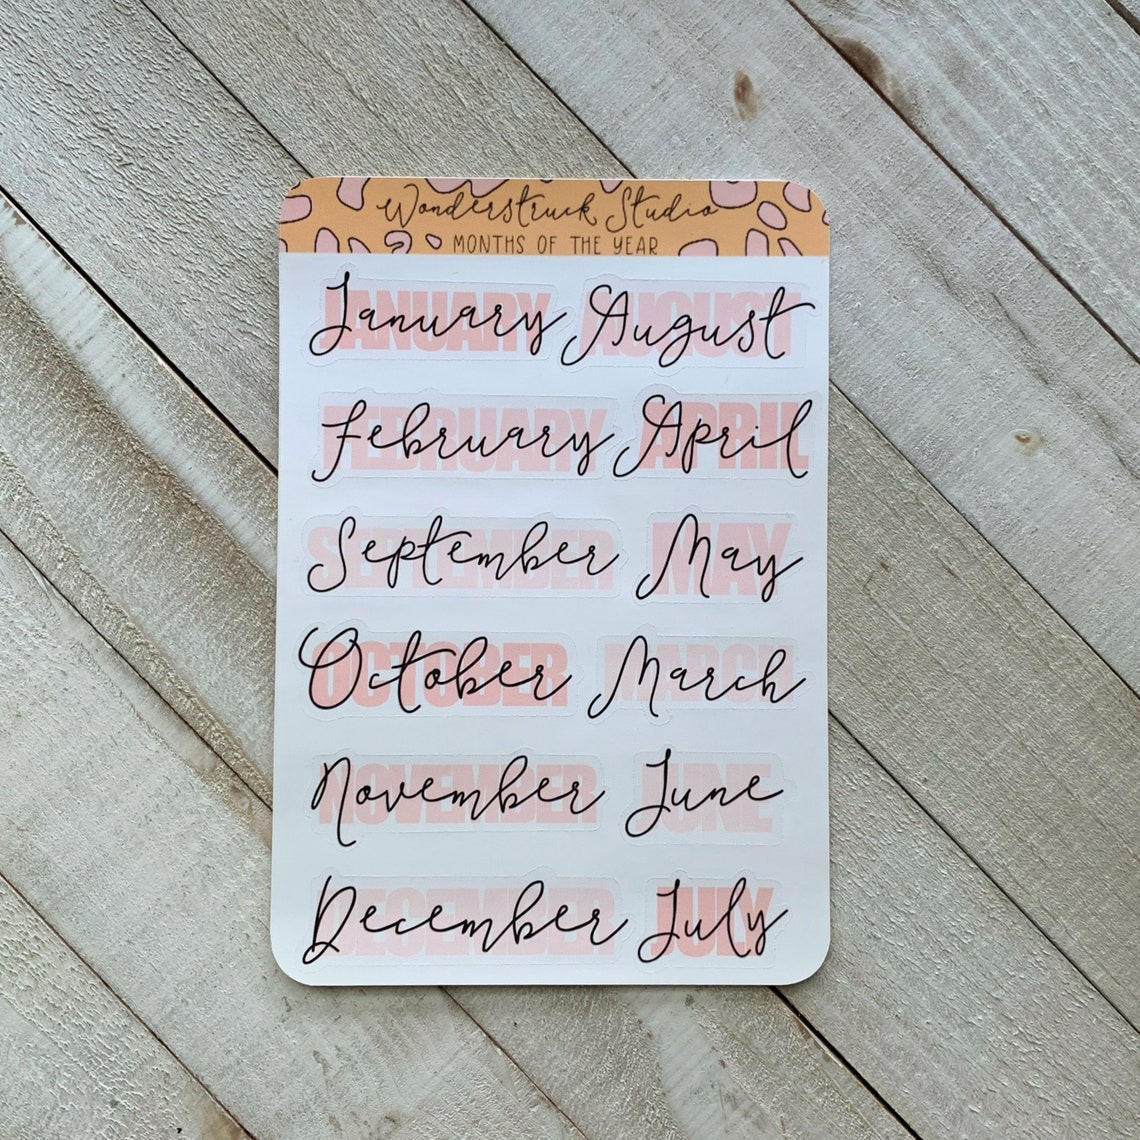 Wonderstruck Studio
MONTHS OF THE YEAR
JANUARY January AUGUST August
FEBRUARY February APRIL April
SEPTEMBER September MAY May
OCTOBER October MARCH March
NOVEMBER November JUNE June
DECEMBER December JULY July